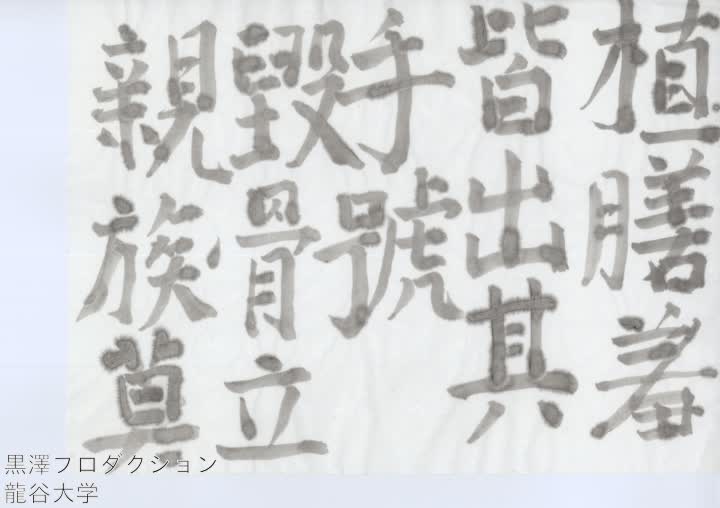 植膳羞
皆出其
手號
毀骨立
親族莫
黒澤プロダクション
龍谷大学